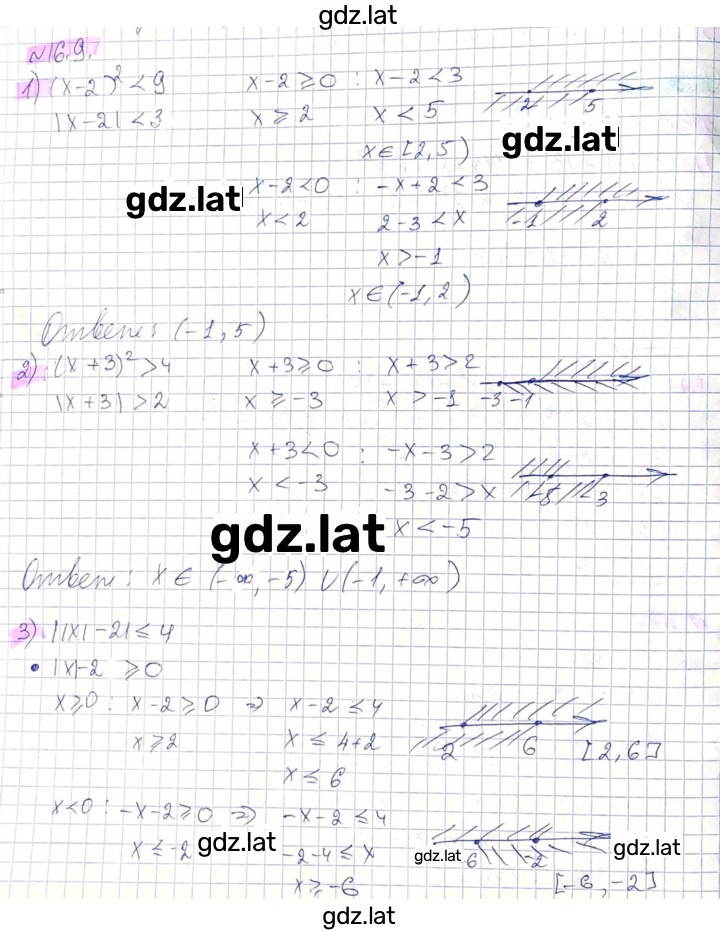 gdz.lat
№16.9.
1) (x-2)² < 9 x-2 ≥ 0 : x-2 < 3
|x-2| < 3 x ≥ 2 x < 5 2 5
x ∈ [2,5) gdz.lat
gdz.lat x-2 < 0 : -x+2 < 3
x < 2 2-3 < x -1 2
x > -1
x ∈ (-1,2)
Ответ: (-1,5)
2) (x+3)² > 4 x+3 ≥ 0 : x+3 > 2
|x+3| > 2 x ≥ -3 x > -1 -3 -1
x+3 < 0 : -x-3 > 2
x < -3 -3-2 > x
gdz.lat x < -5
Ответ: x ∈ (-∞,-5) ∪ (-1,+∞)
3) ||x|-2| ≤ 4
• |x|-2 ≥ 0
x ≥ 0 : x-2 ≥ 0 ⇒ x-2 ≤ 4
x ≥ 2 x ≤ 4+2 2 6 [2,6]
x ≤ 6
x < 0 : -x-2 ≥ 0 ⇒ -x-2 ≤ 4
x ≤ -2 gdz.lat -2-4 ≤ x gdz.lat -6 -2 gdz.lat
x ≥ -6 [-6,-2]
gdz.lat